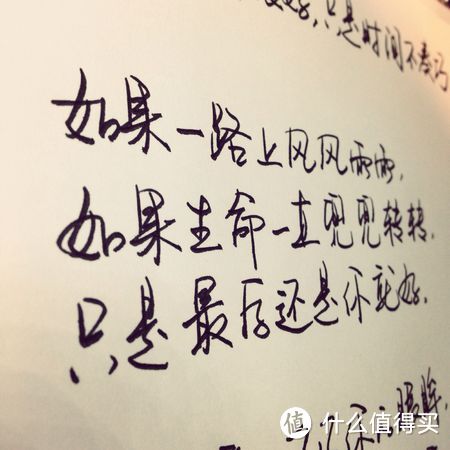 只是时间不凑巧
如果一路上风风雨雨,
如果生命一直兜兜转转.
只是最后还是你就好.
你的眼眸,
值 什么值得买